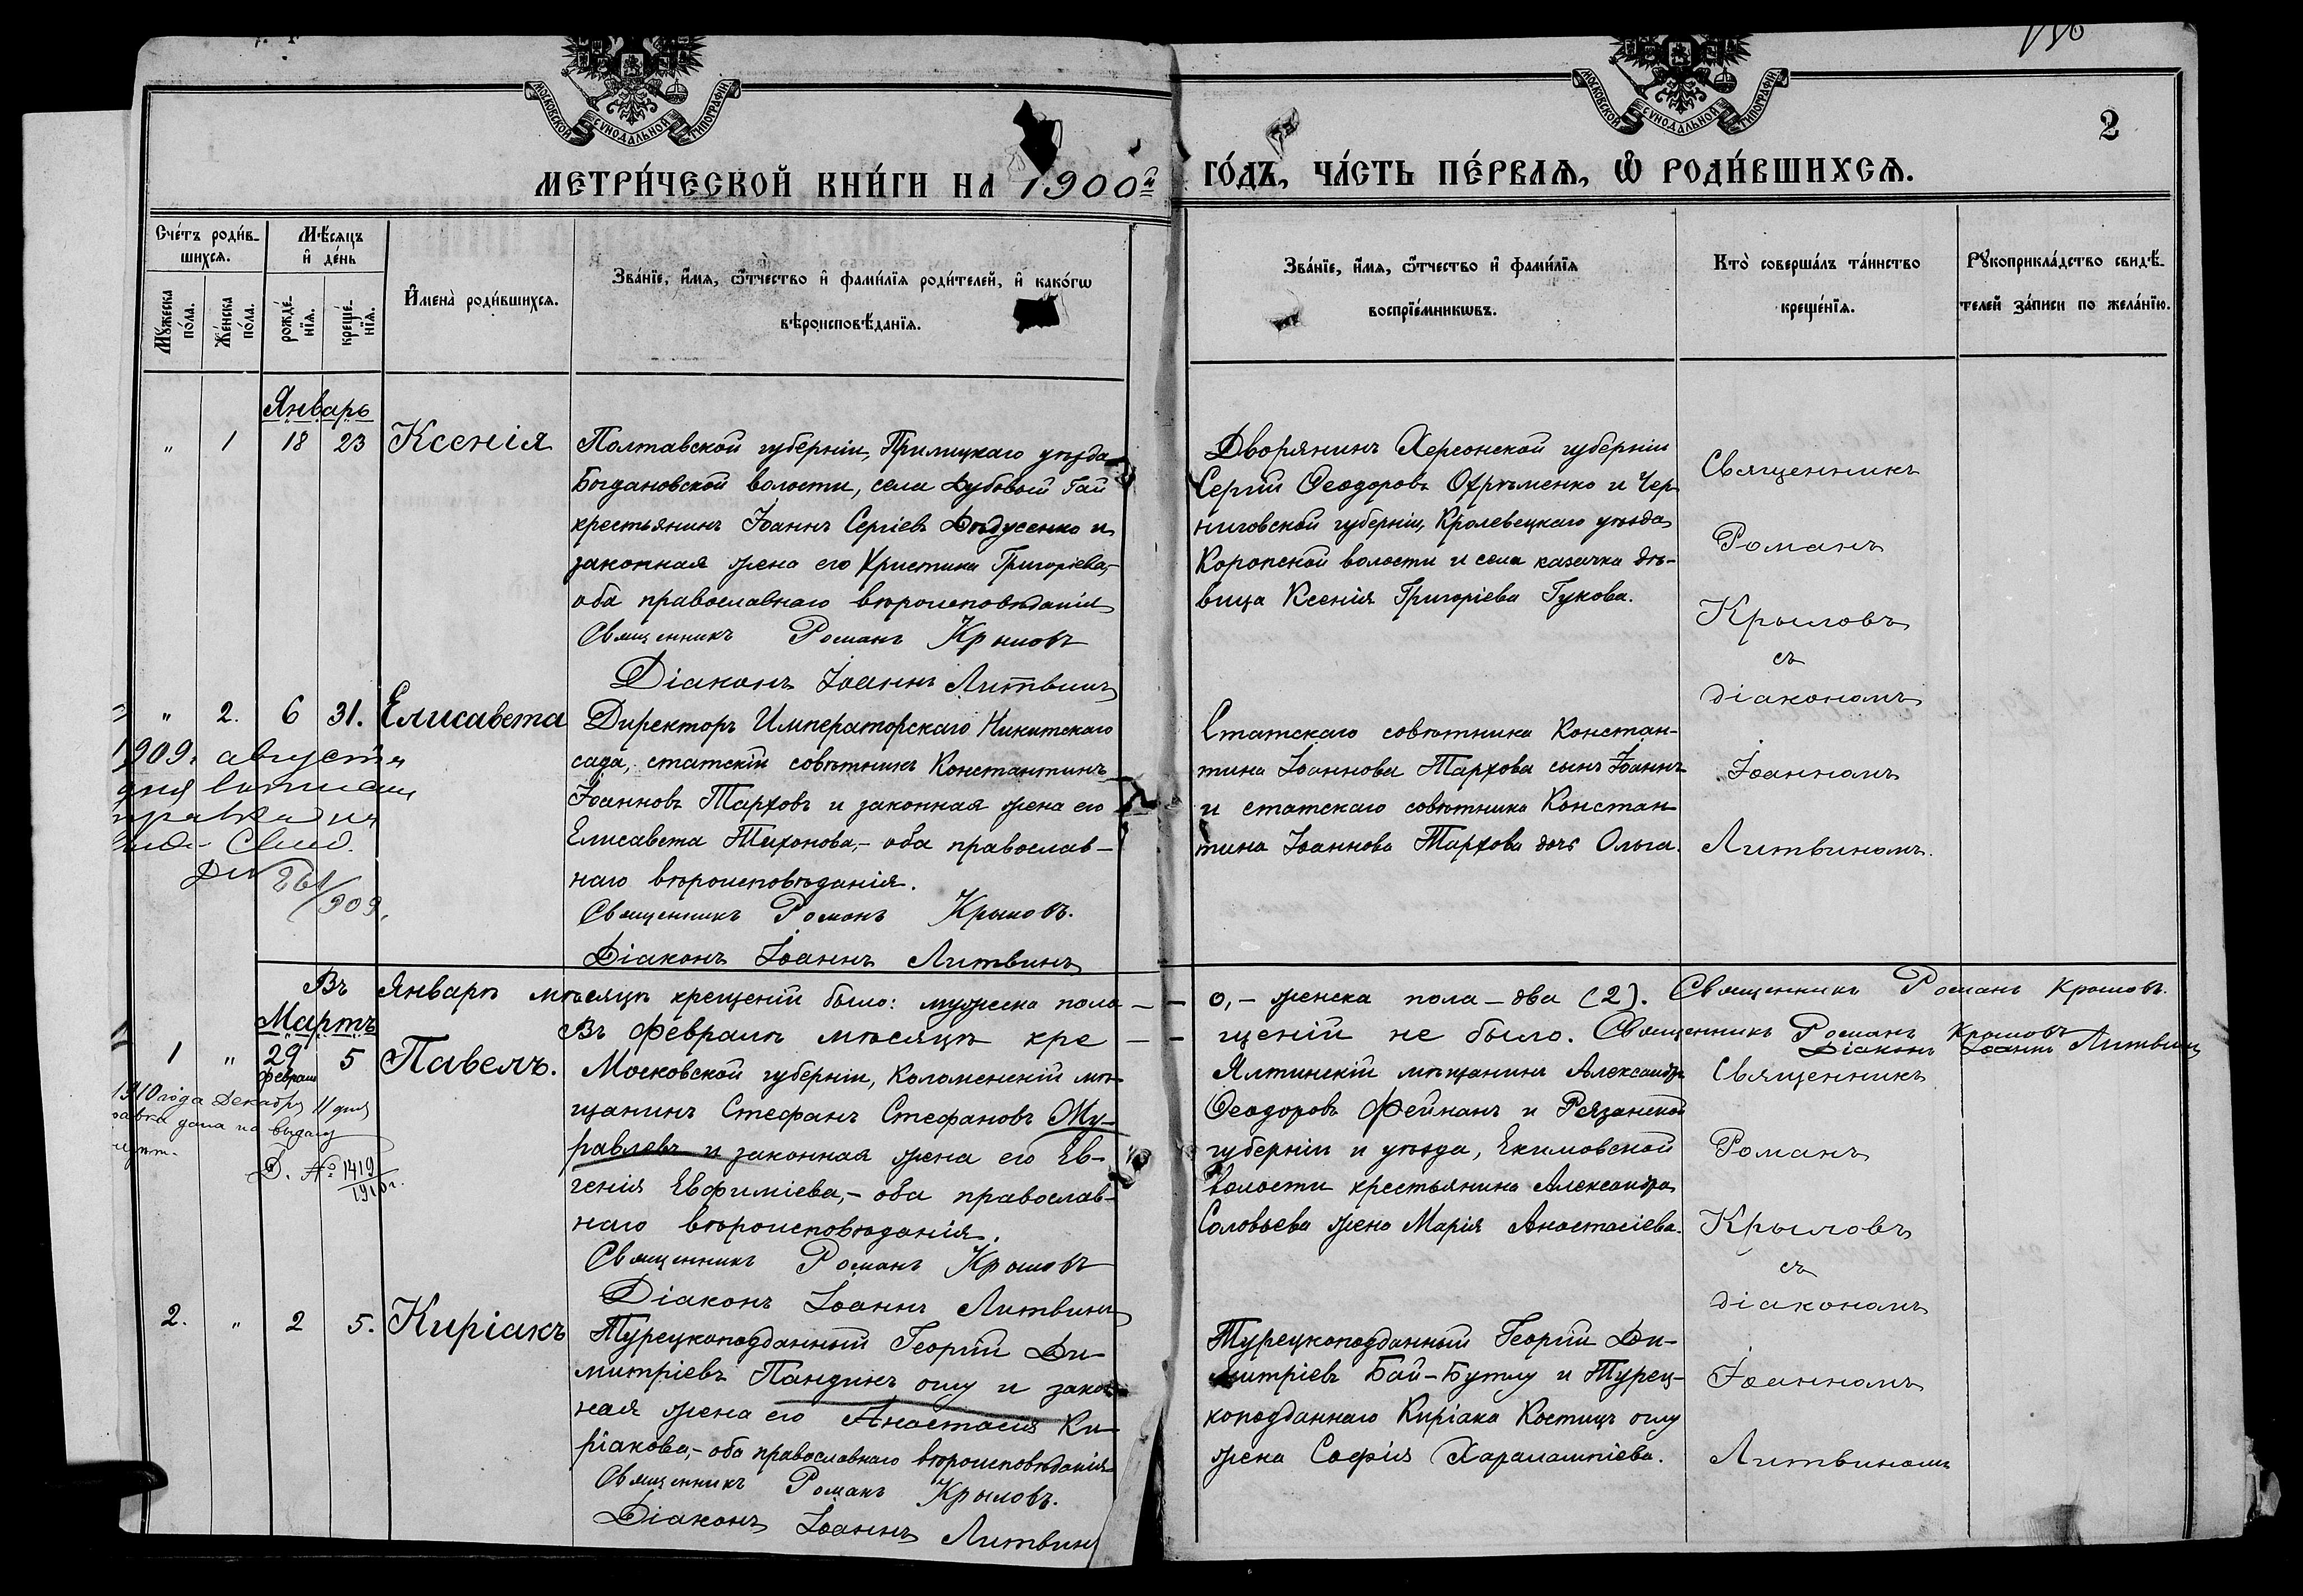 МОСКОВСКОЙ СѴНОДАЛЬНОЙ ТИПОГРАФІИ
МОСКОВСКОЙ СѴНОДАЛЬНОЙ ТИПОГРАФІИ
2
МЕТРИ́ЧЕСКОЙ КНИ́ГИ НА 1900й ГО́ДЪ, ЧА́СТЬ ПЕ́РВАѦ, Ѡ҆ РОДИ́ВШИХСѦ.
Сче́тъ роди́в-
шихсѧ.
Мꙋ́жеска по́ла.
Же́нска по́ла.
Мѣ́сѧцъ
и҆ де́нь
рожде́-
нїѧ.
креще́-
нїѧ.
И҆мена̀ роди́вшихсѧ.
Зва́нїе, и҆́мѧ, ѻ҆́тчество и҆ фами́лїѧ роди́телей, и҆ како́гѡ
вѣроисповѣ́данїѧ.
Зва́нїе, и҆́мѧ, ѻ҆́тчество и҆ фами́лїѧ
воспрїе́мникѡвъ.
Кто̀ соверша́лъ та́инство
креще́нїѧ.
Рꙋкоприкла́дство свидѣ́-
телей за́писи по жела́нїю.
Январь
" 1 18 23 Ксенія
Полтавской губерніи, Прилуцкаго уѣзда
Богдановской волости, села Дубовый Гай
крестьянинъ Іоаннъ Сергіевъ Дѣдусенко и
законная жена его Христина Григоріева,-
оба православнаго вѣроисповѣданія
Священникъ Романъ Крыловъ
Діаконъ Іоаннъ Литвинъ
Дворянинъ Херсонской губерніи
Сергій Ѳеодоровъ Охрѣменко и Чер-
ниговской губерніи, Кролевецкаго уѣзда
Коропской волости и села казачка дѣ-
вица Ксенія Григоріева Гукова.
Священникъ
Романъ
Крыловъ
съ
діакономъ
Іоанномъ
Литвиномъ.
" 2. 6 31. Елисавета
Директоръ Императорскаго Никитскаго
сада, статскій совѣтникъ Константинъ
Іоанновъ Тархов и законная жена его
Елисавета Тихонова,- оба православ-
наго вѣроисповѣданія.
Священникъ Романъ Крыловъ.
Діаконъ Іоаннъ Литвинъ
Статскаго совѣтника Констан-
тина Іоаннова Тархова сынъ Іоаннъ
и статскаго совѣтника Констан-
тина Іоаннова Тархова дочь Ольга.
1909. августа
дня
Свид.
261/909.
Въ Январѣ мѣсяцѣ крещеній было: мужеска пола - - 0,- женска пола - два (2). Священникъ Романъ Крыловъ.
Въ Февралѣ мѣсяцѣ кре - - щеній не было. Священникъ Романъ Крыловъ
Діаконъ Іоаннъ Литвинъ
Мартъ
1 " 29 Февраля 5 Павелъ.
Московской губерніи, Коломенскій мѣ-
щанинъ Стефанъ Стефановъ Му-
равлевъ и законная жена его Ев-
генія Евфиміева,- оба православ-
наго вѣроисповѣданія.
Священникъ Романъ Крыловъ
Діаконъ Іоаннъ Литвинъ
Ялтинскій мѣщанинъ Александръ
Ѳеодоровъ Фейманъ и Рязанской
губерніи и уѣзда, Екимовской
волости крестьянина Александра
Соловьева жена Марія Анастасіева.
Священникъ
Романъ
Крыловъ
съ
діакономъ
Іоанномъ
Литвиномъ
1910 года Декабря 11 дня
дана на выдачу
Д. № 1419
1910 г.
2. " 2 5. Киріакъ
Турецкоподданный Георгій Ди-
митріевъ Пандинъ оглу и закон-
ная жена его Анастасія Ки-
ріакова,- оба православнаго вѣроисповѣданія
Священникъ Романъ Крыловъ.
Діаконъ Іоаннъ Литвинъ
Турецкоподданный Георгій Ди-
митріевъ Бай-Бутлу и Турец-
коподданнаго Киріака Костицъ оглу
жена Софія Харалампіева.